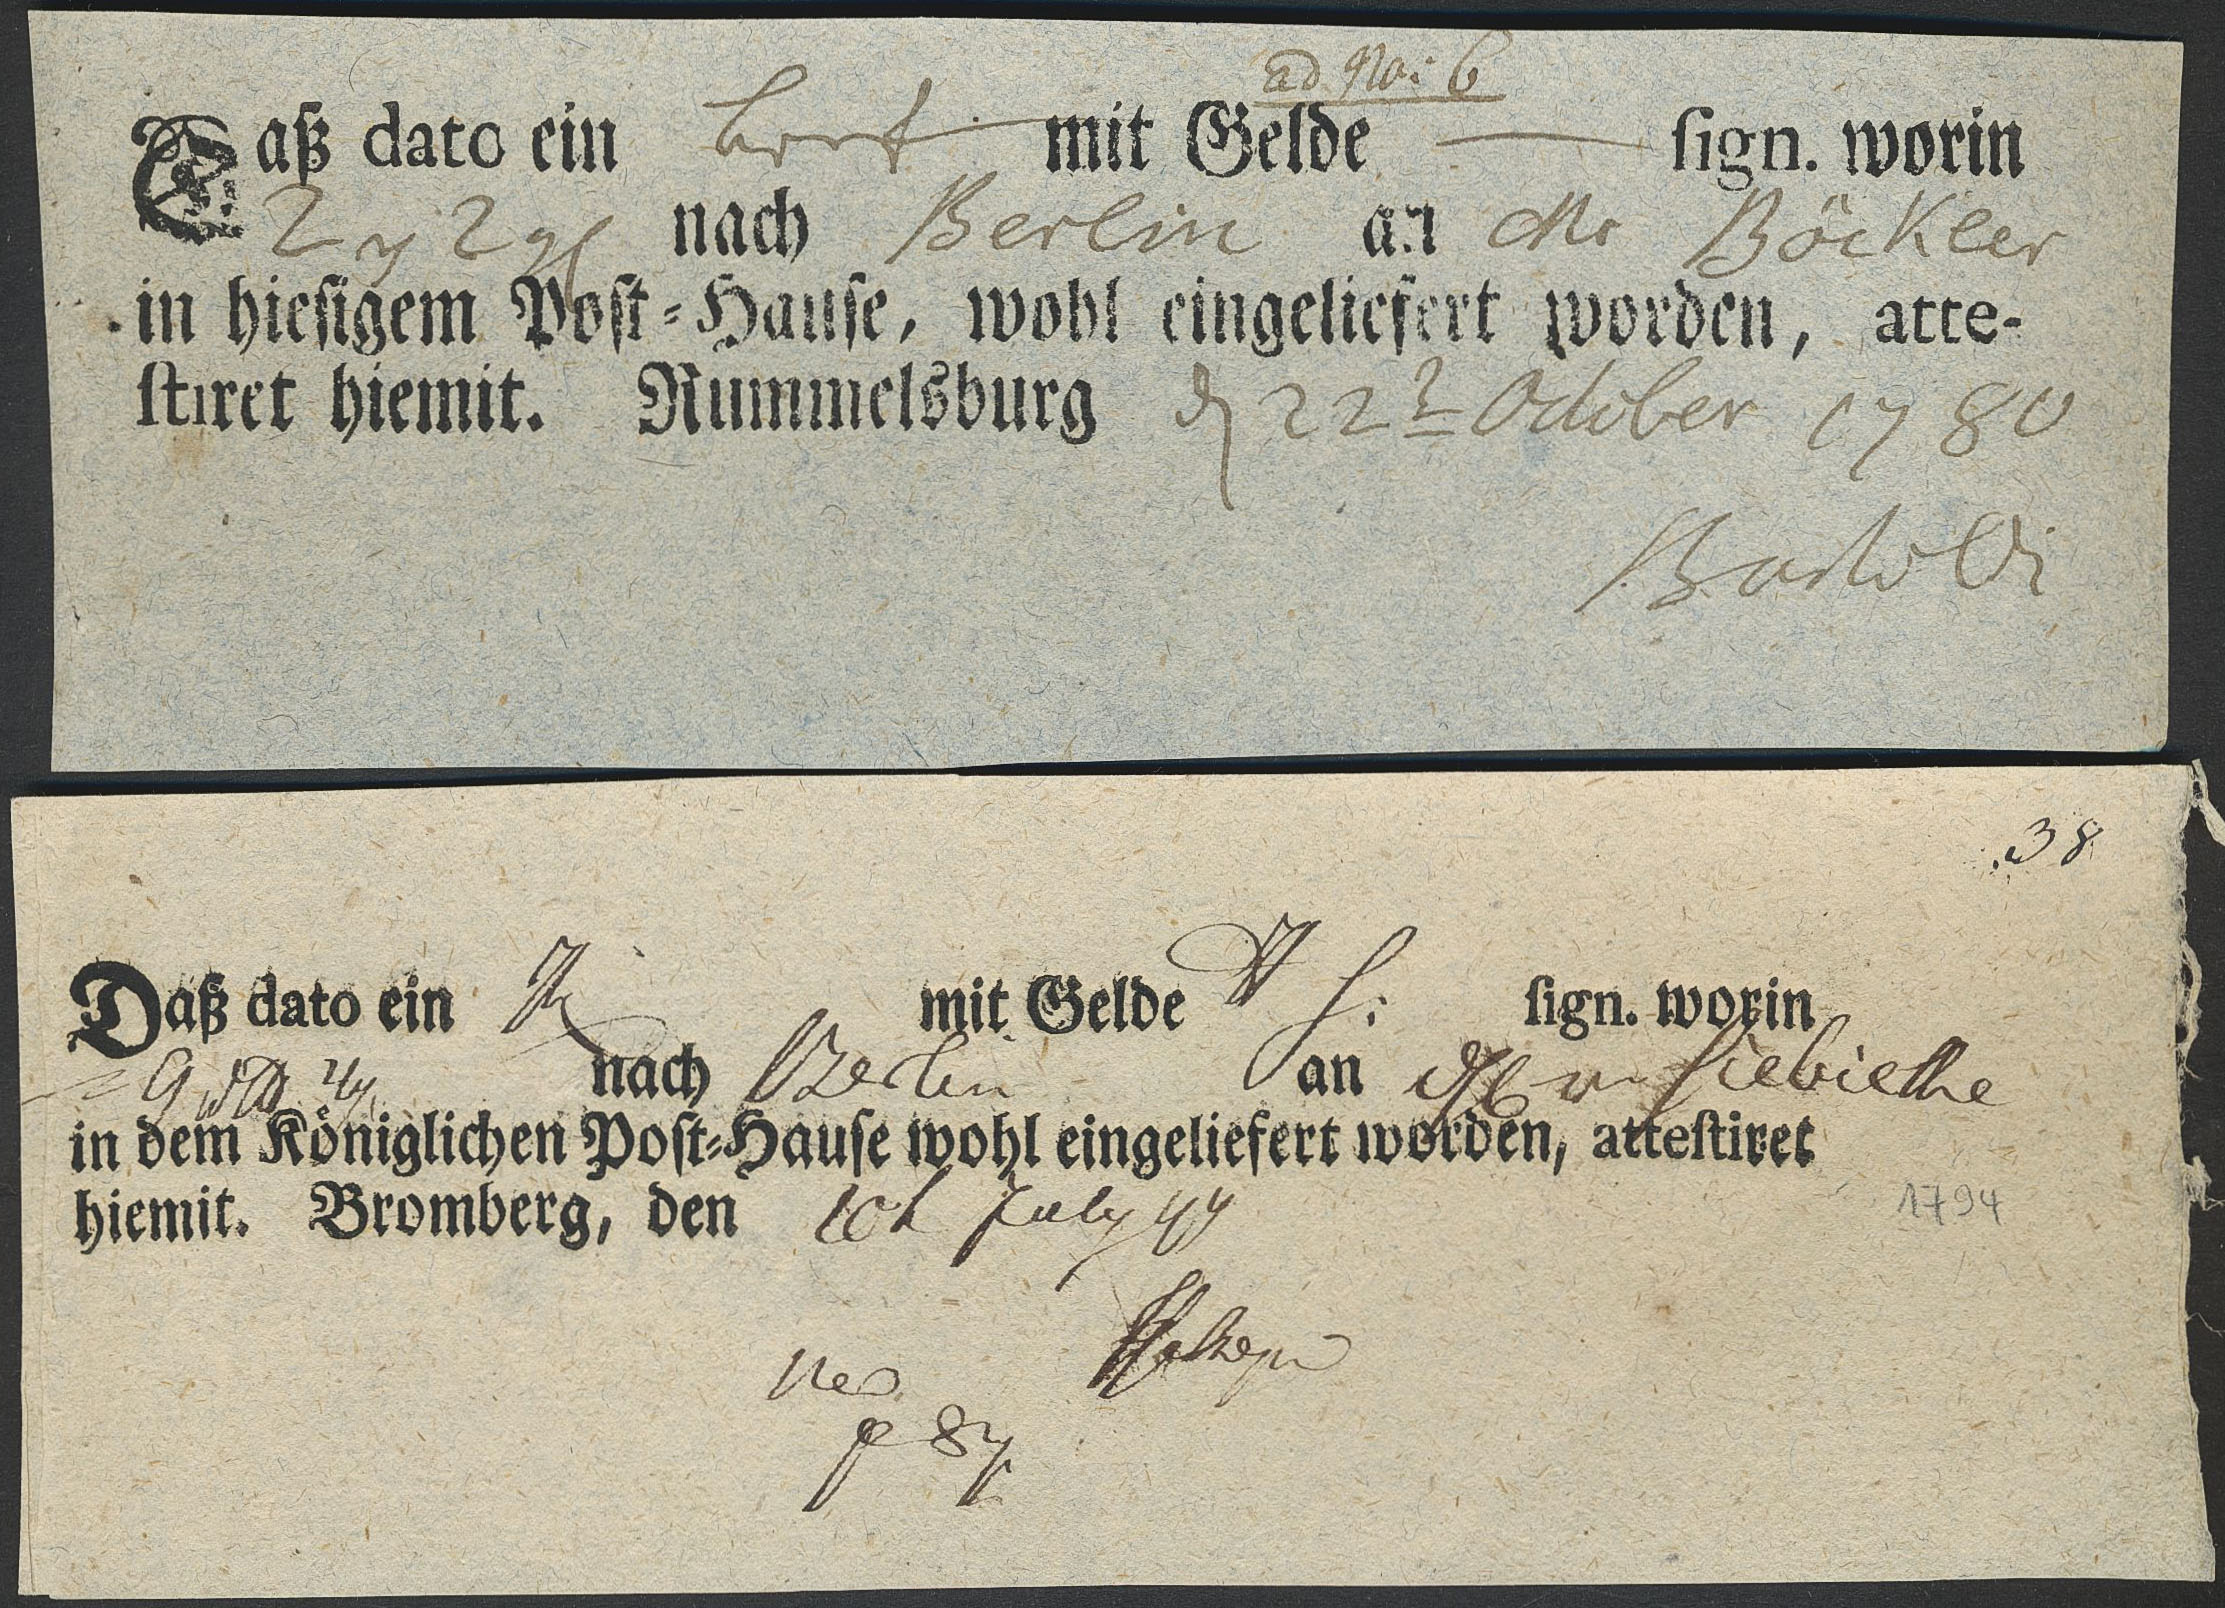 ad No: 6
Daß dato ein mit Gelde — sign. worin
2 2 nach Berlin an Mr Böckler
in hiesigem Post-Hause, wohl eingeliefert worden, atte-
stiret hiemit. Rummelsburg d 22t October 1780
38
Daß dato ein mit Gelde sign. worin
9 nach Berlin an
in dem Königlichen Post-Hause wohl eingeliefert worden, attestiret
hiemit. Bromberg, den 10t July 94
1794